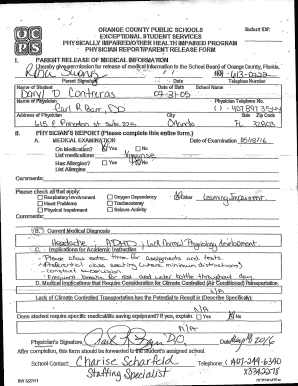 ORANGE COUNTY PUBLIC SCHOOLS
EXCEPTIONAL STUDENT SERVICES
PHYSICALLY IMPAIRED/OTHER HEALTH IMPAIRED PROGRAM
PHYSICIAN REPORT/PARENT RELEASE FORM
Student ID#:
OCPS
I. PARENT RELEASE OF MEDICAL INFORMATION
I hereby give permission for release of medical information to the School Board of Orange County, Florida.
613-0228
Parent Signature Date Telephone Number
Name of Student Date of Birth School Name
Daryl D Contreras 07-31-05
Name of Physician Physician Telephone No.
Carl R Barr, DO
Address of Physician City State Zip Code
615 E Princeton st suite 225 Orlando FL 32803
II. PHYSICIAN'S REPORT (Please complete this entire form.)
A. MEDICAL EXAMINATION Date of Examination 05/18/16
On Medication? Yes No
List medications: Vyvanse
Has Allergies? Yes No
List Allergies
Comments:
Please check all that apply:
Respiratory Involvement Oxygen Dependency Other Learning Impairment
Heart Problems Tracheostomy
Physical Impairment Seizure Activity
Comments:
B. Current Medical Diagnosis
Headache, ADHD, Lack Normal Physiology development
C. Implications for Academic Instruction
Please allow extra time for assignments and tests
Preferential class seating (where minimum distractions)
constant supervision
Frequent breaks for rest and water bottle throughout day
D. Medical Implications that Require Consideration for Climate Controlled (Air Conditioned) Transportation
N/A
Lack of Climate Controlled Transportation has the Potential to Result in (Describe Specifically):
N/A
Does student require specific medical/life saving equipment? If yes, explain. Yes No
N/A
Physician's Signature D.O. Date
After completion, this form should be forwarded to the student's assigned school.
School Contact: Charise Scharfeld Telephone: 407-249-6340
Staffing Specialist X3342278